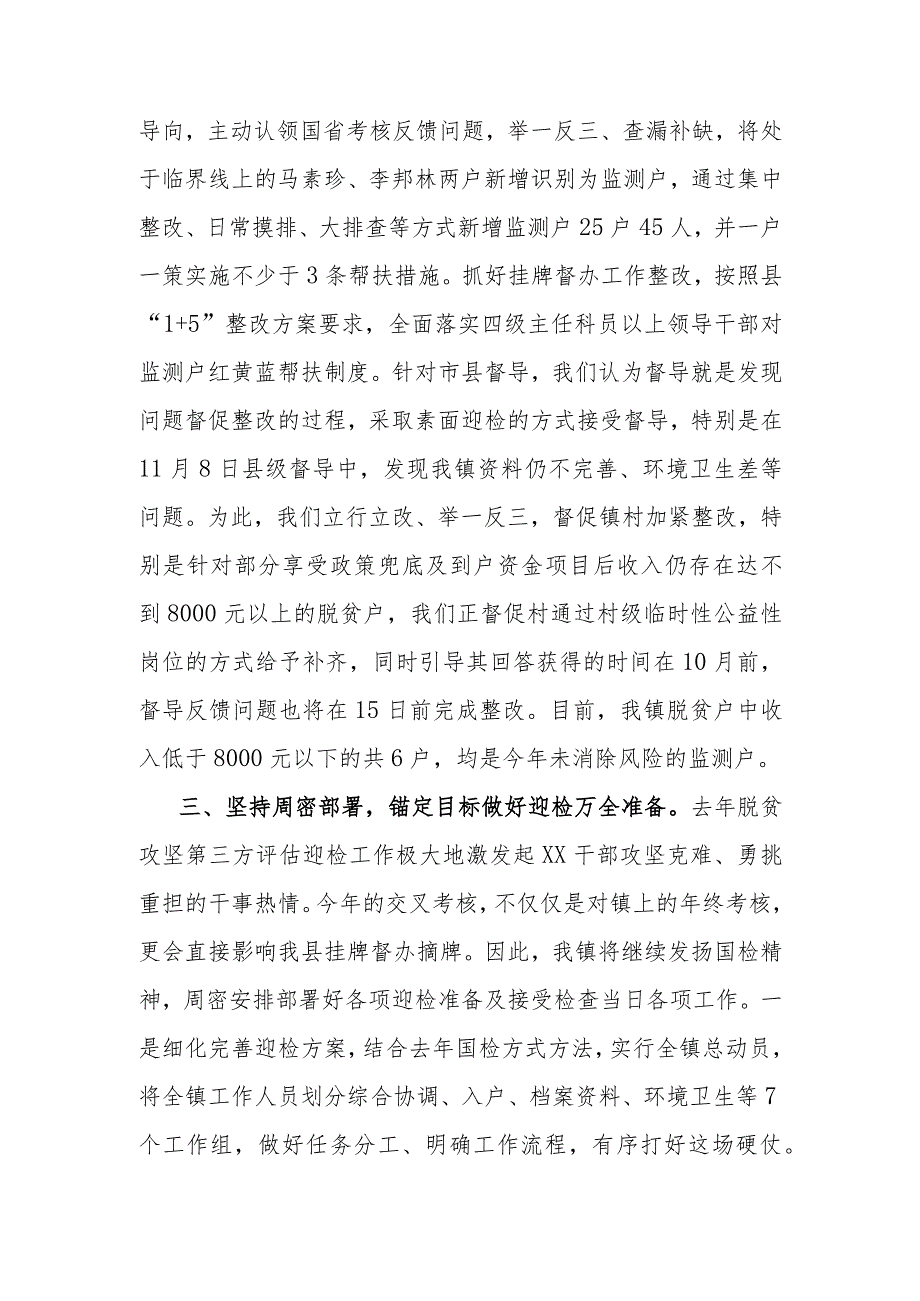 导向，主动认领国省考核反馈问题，举一反三、查漏补缺，将处
于临界线上的马素珍、李邦林两户新增识别为监测户，通过集中
整改、日常摸排、大排查等方式新增监测户 25 户 45 人，并一户
一策实施不少于 3 条帮扶措施。抓好挂牌督办工作整改，按照县
“1+5”整改方案要求，全面落实四级主任科员以上领导干部对
监测户红黄蓝帮扶制度。针对市县督导，我们认为督导就是发现
问题督促整改的过程，采取素面迎检的方式接受督导，特别是在
11 月 8 日县级督导中，发现我镇资料仍不完善、环境卫生差等
问题。为此，我们立行立改、举一反三，督促镇村加紧整改，特
别是针对部分享受政策兜底及到户资金项目后收入仍存在达不
到 8000 元以上的脱贫户，我们正督促村通过村级临时性公益性
岗位的方式给予补齐，同时引导其回答获得的时间在 10 月前，
督导反馈问题也将在 15 日前完成整改。目前，我镇脱贫户中收
入低于 8000 元以下的共 6 户，均是今年未消除风险的监测户。
三、坚持周密部署，锚定目标做好迎检万全准备。去年脱贫
攻坚第三方评估迎检工作极大地激发起 XX 干部攻坚克难、勇挑
重担的干事热情。今年的交叉考核，不仅仅是对镇上的年终考核，
更会直接影响我县挂牌督办摘牌。因此，我镇将继续发扬国检精
神，周密安排部署好各项迎检准备及接受检查当日各项工作。一
是细化完善迎检方案，结合去年国检方式方法，实行全镇总动员，
将全镇工作人员划分综合协调、入户、档案资料、环境卫生等 7
个工作组，做好任务分工、明确工作流程，有序打好这场硬仗。